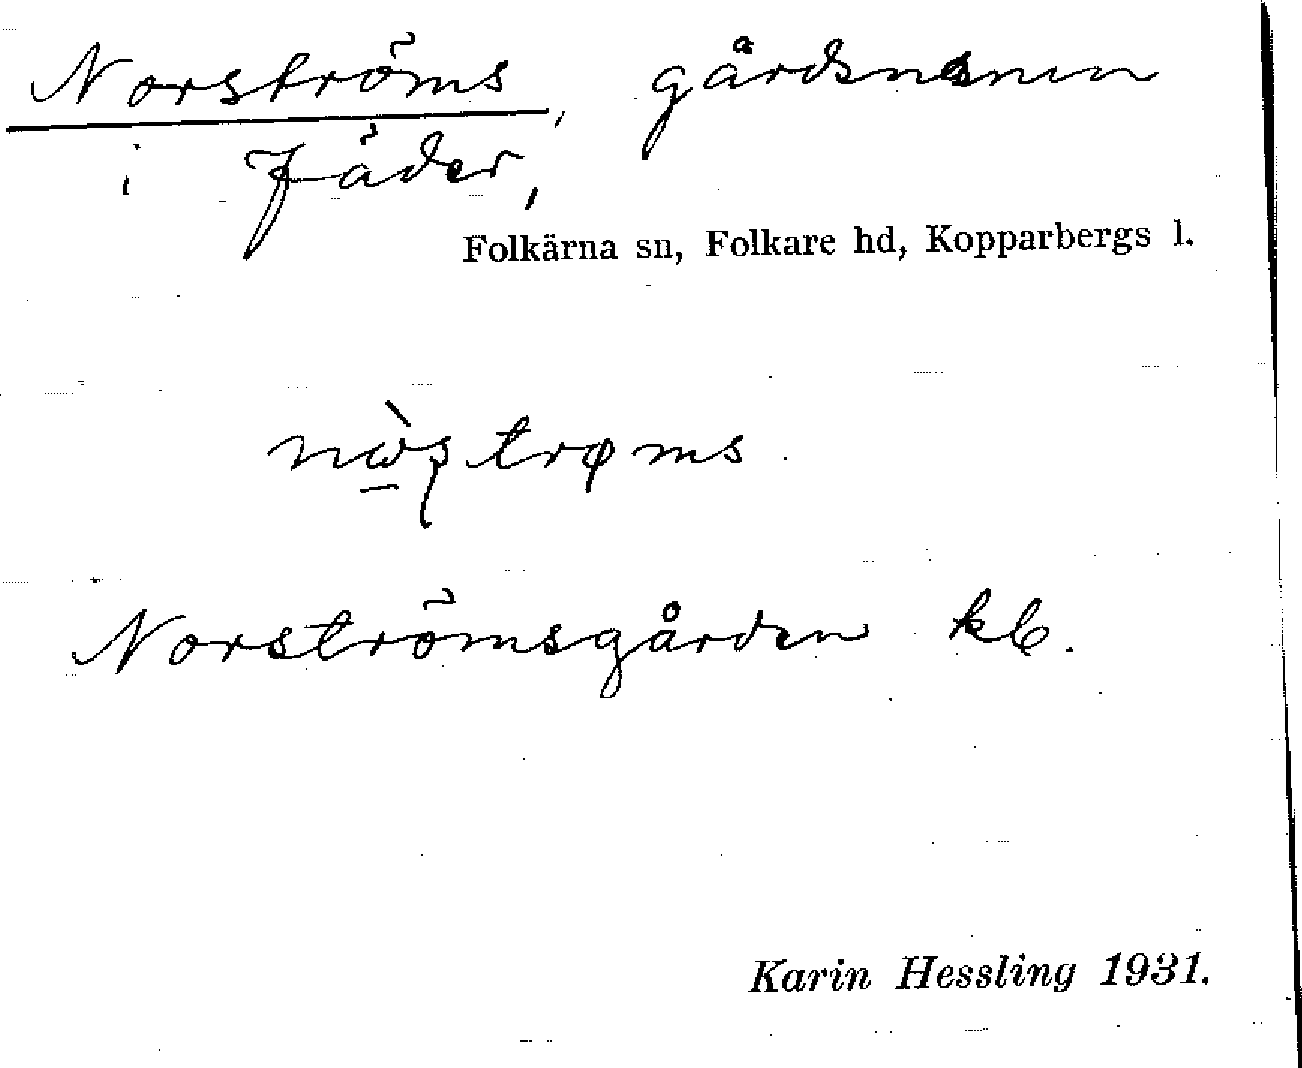 Norströms, gårdsnamn
i Jäder,
Folkärna sn, Folkare hd, Kopparbergs l.
nὼ̠ʂtrφms.
Norströmsgården kb.
Karin Hessling 1931.